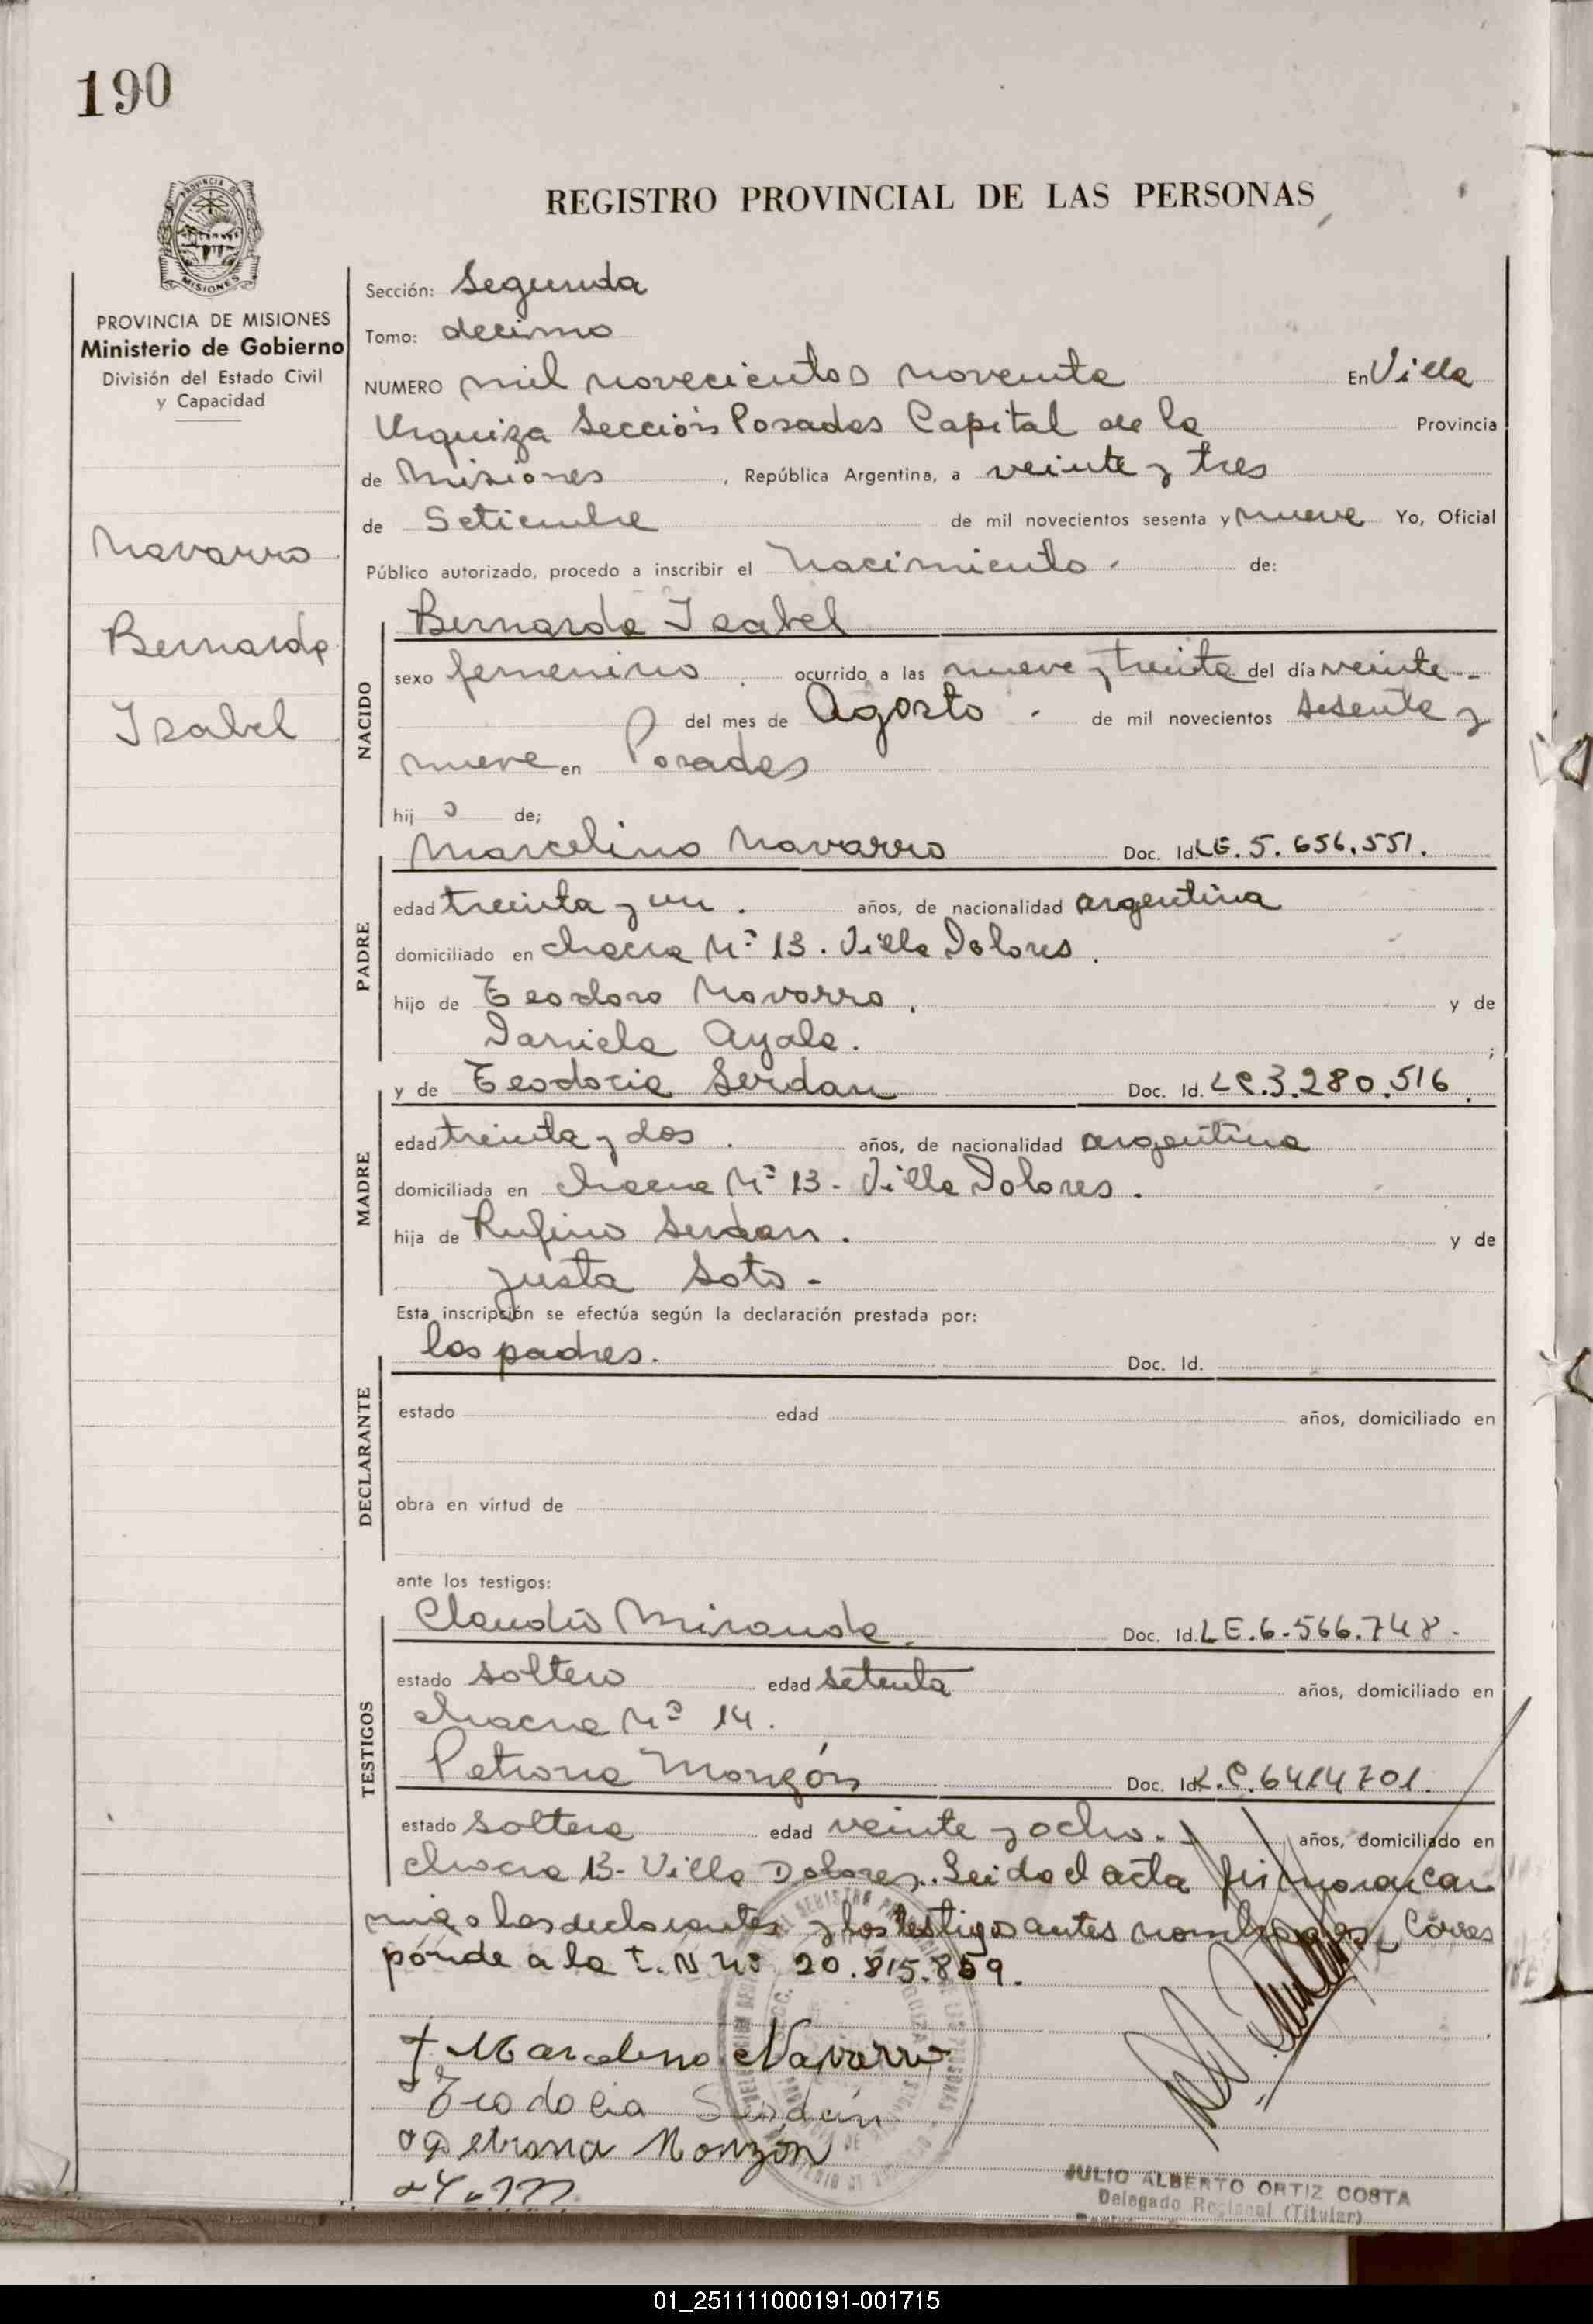 190
REGISTRO PROVINCIAL DE LAS PERSONAS
PROVINCIA DE MISIONES
Ministerio de Gobierno
División del Estado Civil
y Capacidad
Navarro
Bernarda
Isabel
Sección: Segunda
Tomo: decimo
NUMERO mil novecientos noventa En Villa
Urquiza Sección Posadas Capital de la Provincia
de Misiones, República Argentina, a veinte y tres
de Setiembre de mil novecientos sesenta y nueve Yo, Oficial
Público autorizado, procedo a inscribir el Nacimiento. de:
NACIDO
Bernarda Isabel
sexo femenino. ocurrido a las nueve y treinta del día veinte-
del mes de Agosto. de mil novecientos sesenta y
nueve en Posadas
hij o de;
PADRE
Marcelino Navarro Doc. Id. LE. 5.656.551.
edad treinta y un. años, de nacionalidad argentina
domiciliado en chacra Nº 13. Villa Dolores.
hijo de Teodoro Navarro. y de
Daniela Ayala. ;
MADRE
y de Teodocia Serdan Doc. Id. LC.3.280.516.
edad treinta y dos. años, de nacionalidad argentina
domiciliada en chacra Nº 13- Villa Dolores.
hija de Rufino Serdan. y de
Justa Soto-
Esta inscripción se efectúa según la declaración prestada por:
DECLARANTE
los padres. Doc. Id.
estado edad años, domiciliado en
obra en virtud de
ante los testigos:
TESTIGOS
Claudio Miranda. Doc. Id. LE.6-566.748-
estado soltero edad setenta años, domiciliado en
chacra Nº 14.
Petrona Monzón Doc. Id. L.C.6414701.
estado soltera edad veinte y ocho. años, domiciliado en
chacra 13- Villa Dolores. Leida el acta firmaron con
migo los declarantes y los testigos antes nombrados, Corres
ponde a la T. N Nº 20.815.859.
Marcelino Navarro
Teodocia Serdán
Petrona Monzón
JULIO ALBERTO ORTIZ COSTA
Delegado Regional (Titular)
01_251111000191-001715